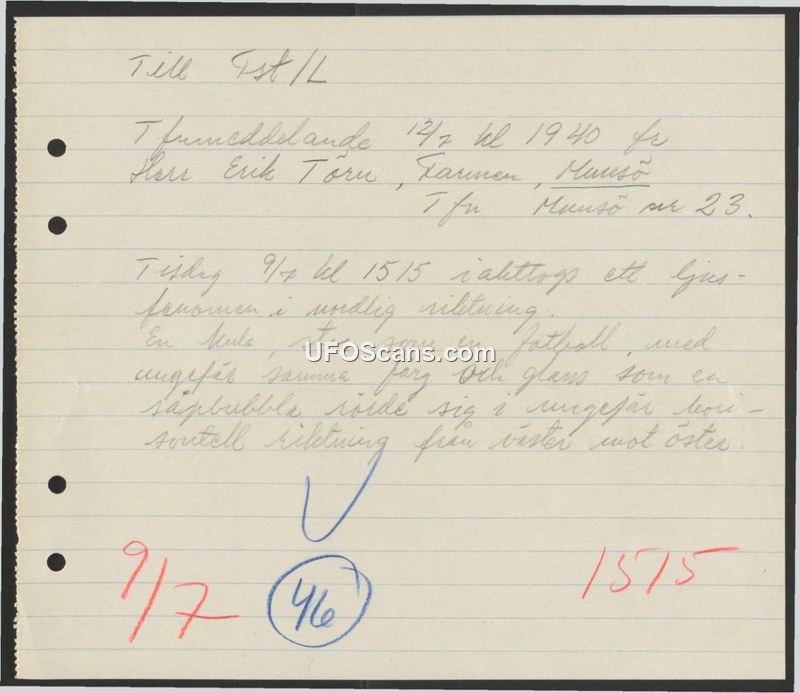 Till Fst/L
Tfnmeddelande 12/7 kl 1940 fr
Herr Erik Törn, Farmen, Munsö
Tfn Munsö nr 23.
Tisdag 9/7 kl 1515 iakttogs ett ljus-
fenomen i nordlig riktning.
En kula, stor som en fotboll, med
ungefär samma färg och glans som en
såpbubbla rörde sig i ungefär hori-
sontell riktning från väster mot öster.
UFOScans.com
9/7 46 1515